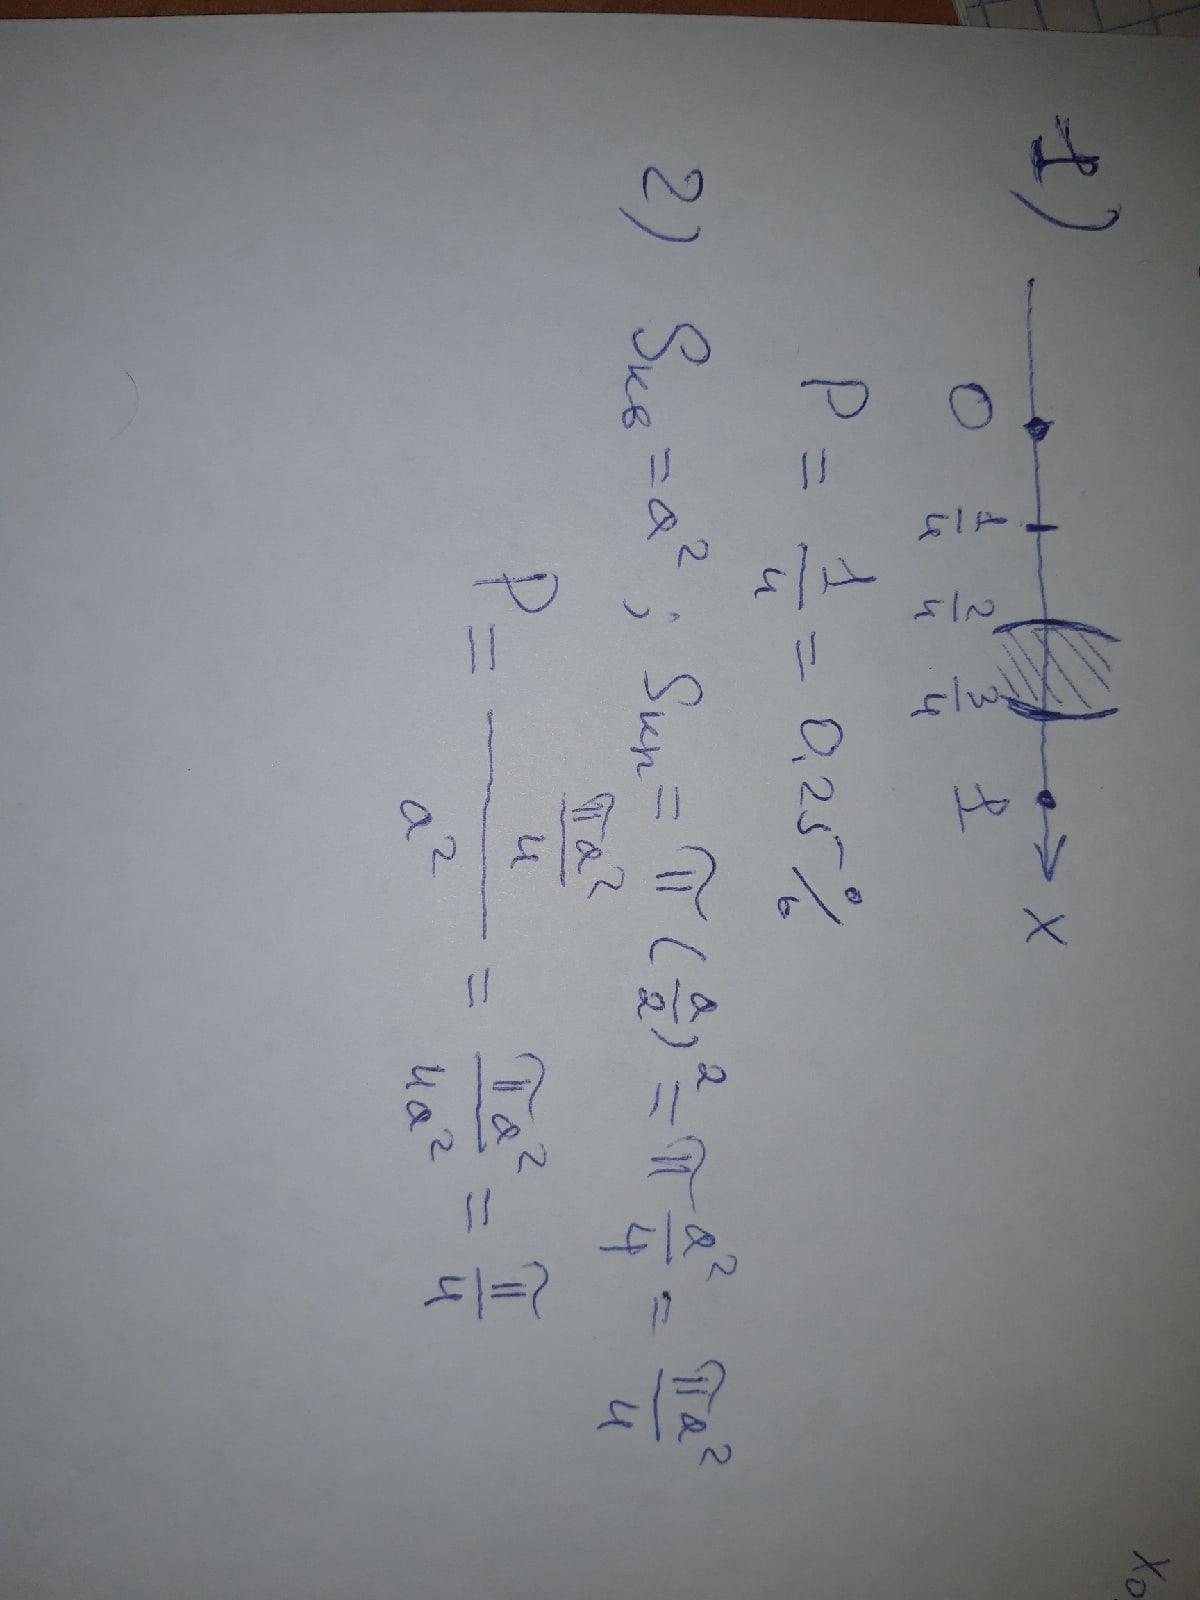 1)
0 1/4 2/4 3/4 1 x
P = 1/4 = 0,25%
2) Sкв = a²; Sкр = π(a/2)² = π a²/4 = πa²/4
P = (πa²/4)/a² = πa²/4a² = π/4
x₀